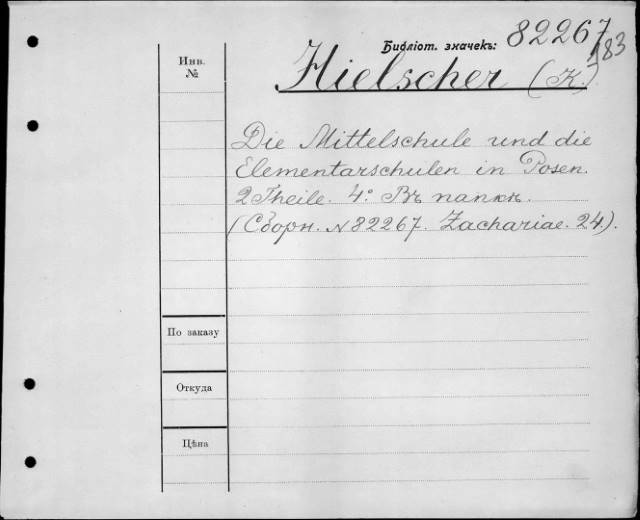 Библіот. значекъ: 82267/183
Инв.
№
Hielscher (K.)
Die Mittelschule und die
Elementarschulen in Posen.
2 Theile. 4º. Въ папкѣ.
(Сборн. N 82267. Zachariae. 24).
По заказу
Откуда
Цѣна